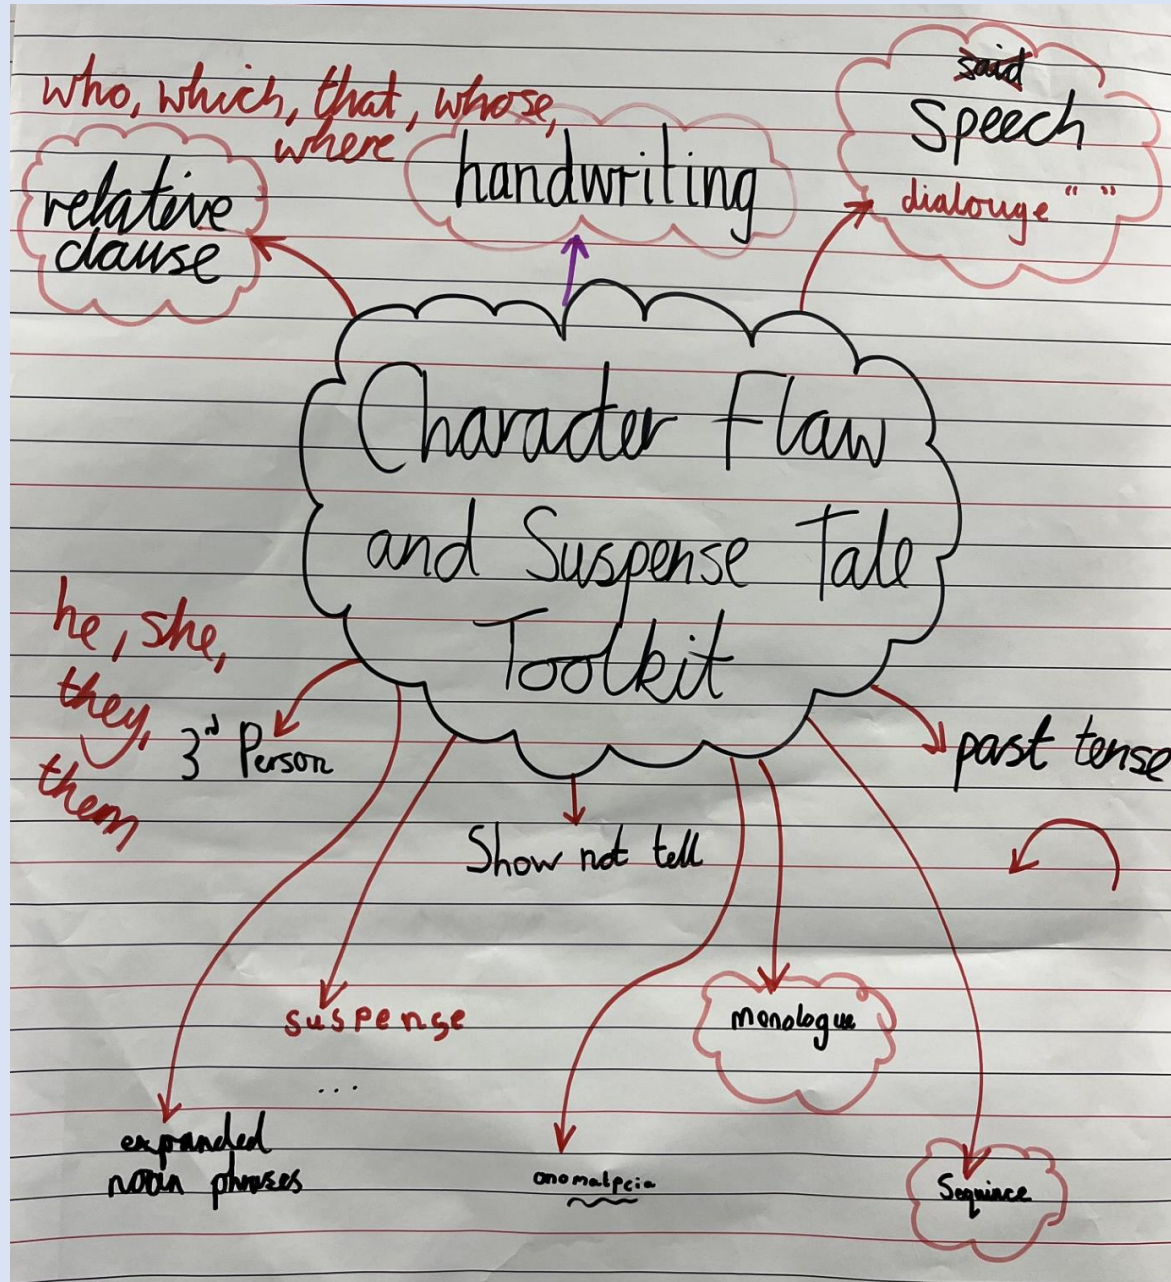 who, which, that, whose,
where
relative
clause
handwriting
said
Speech
dialouge " "
Character Flaw
and Suspense Tale
Toolkit
he, she,
they,
them
3rd Person
past tense
Show not tell
suspense
...
monologue
expanded
noun phrases
onomatpeia
Sequince